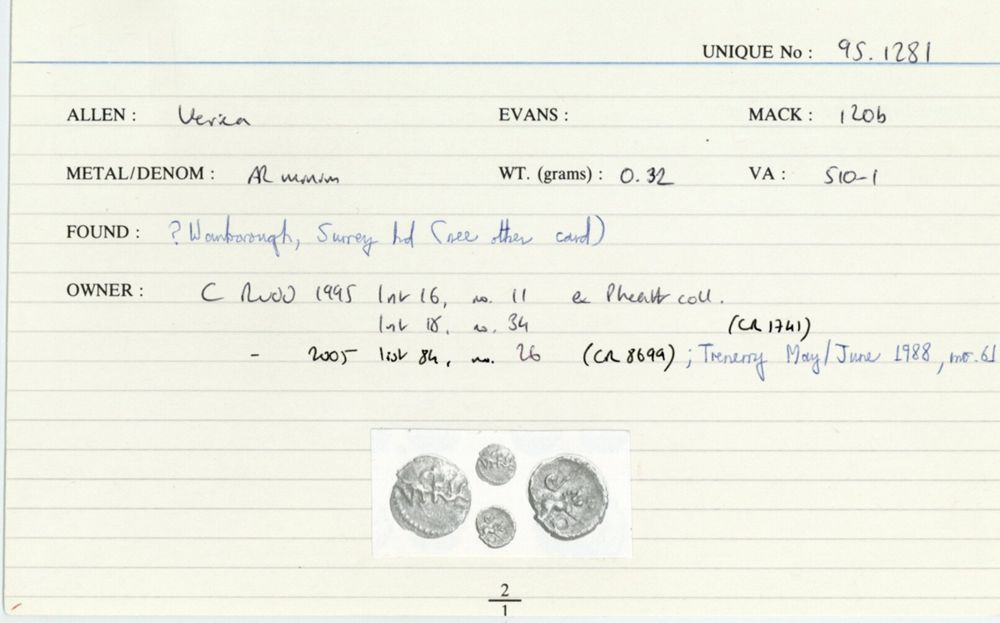 UNIQUE No : 95.1281
ALLEN : Verica EVANS : MACK : 120b
METAL/DENOM : AR minim WT. (grams) : 0.32 VA : 510-1
FOUND : ? Wanborough, Surrey hd (see other card)
OWNER : C RUDD 1995 list 16, no. 11 ex Pheatt coll.
list 18, no. 34 (CR 1741)
- 2005 list 84, no. 26 (CR 8699) ; Trenerry May/June 1988, no. 61
2
1